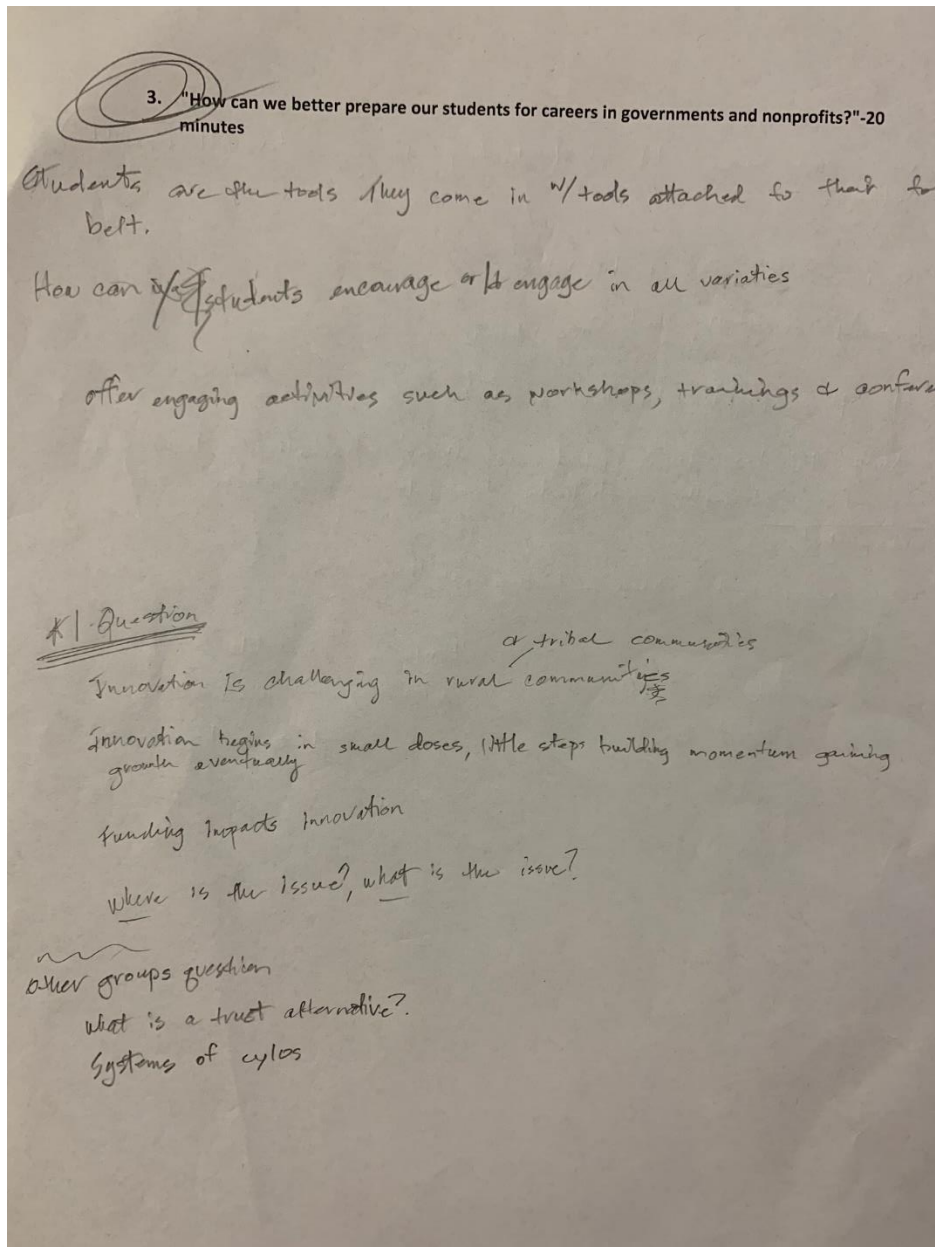 3. "How can we better prepare our students for careers in governments and nonprofits?"-20
minutes
Students are the tools They come in w/ tools attached to that
belt.
How can students encourage engage in all variaties
offer engaging activities such as workshops, trainings & confere
#1 Question
or tribal communities
Innovation is challenging in rural communities
Innovation begins in small doses, little steps building momentum gaining
growth eventually
Funding Impacts Innovation
Where is the issue?, what is the issue?
other groups question
What is a trust alternative?
Systems of cylos